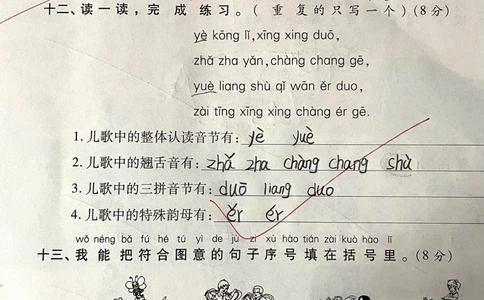 十二、读一读,完成练习。(重复的只写一个)(8分)
yè kōng lǐ,xīng xing duō,
zhǎ zha yǎn,chàng chang gē,
yuè liang shù qǐ wān ěr duo,
zài tīng xīng xing chàng ér gē.
1. 儿歌中的整体认读音节有: yè yuè
2. 儿歌中的翘舌音有: zhǎ zha chàng chang shù
3. 儿歌中的三拼音节有: duō liang duo
4. 儿歌中的特殊韵母有: ěr ér
wǒ néng bǎ fú hé tú yì de jù zi xù hào tián zài kuò hào lǐ
十三、我能把符合图意的句子序号填在括号里。(8分)